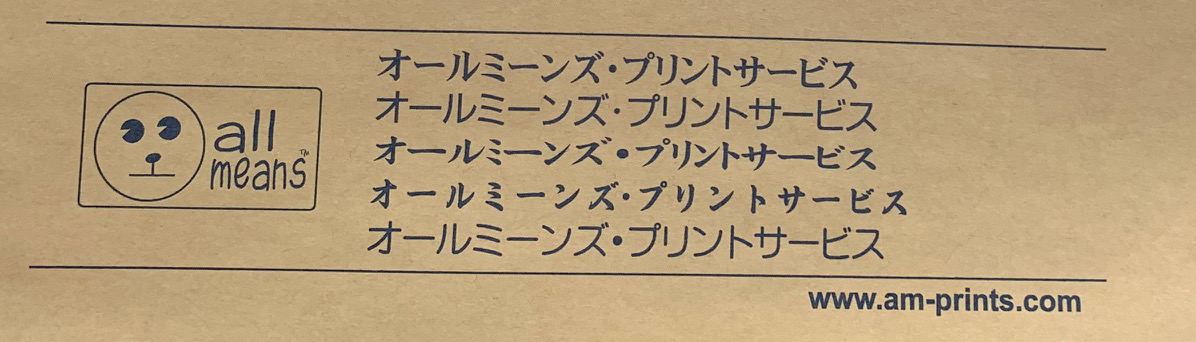 all
means™
オールミーンズ・プリントサービス
オールミーンズ・プリントサービス
オールミーンズ・プリントサービス
オールミーンズ・プリントサービス
オールミーンズ・プリントサービス
www.am-prints.com